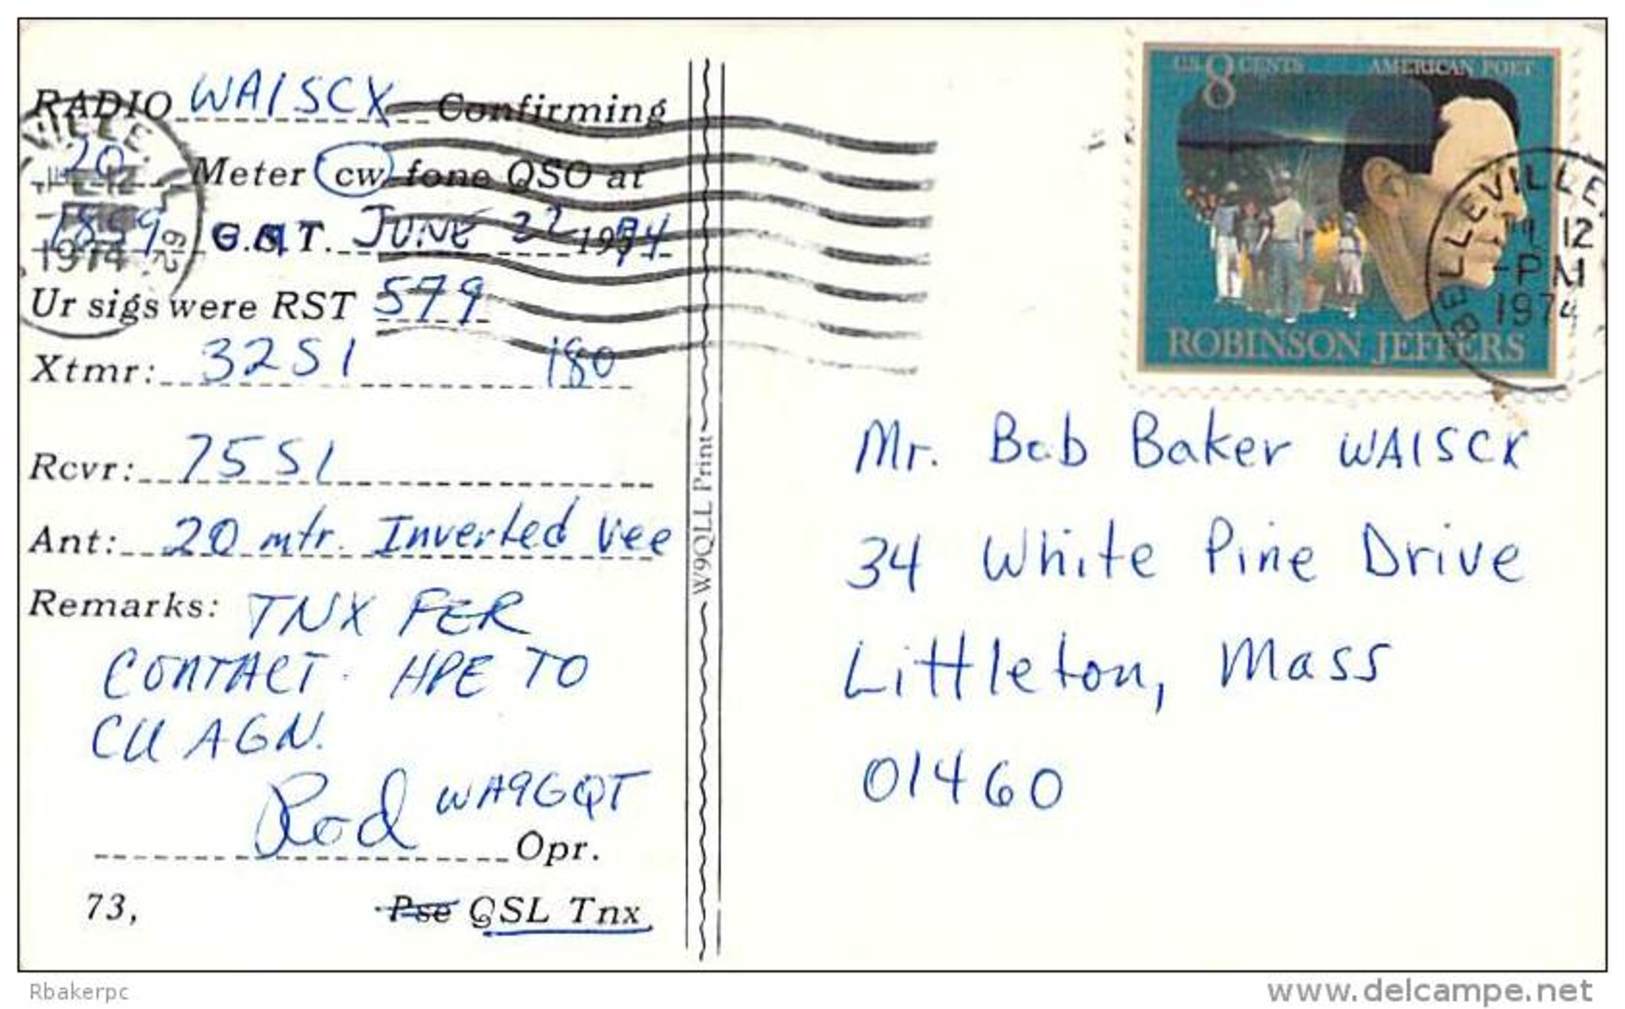 RADIO WA1SCX Confirming
20 Meter cw fone QSO at
1859 G.M.T. JUNE 22 1974
Ur sigs were RST 579
Xtmr: 32S1 180
Rcvr: 75S1
Ant: 20 mtr. Inverted Vee
Remarks: TNX FER
CONTACT. HPE TO
CU AGN.
Rod WA9GQT
Opr.
73, Pse QSL Tnx
W9QLL Print
U.S. 8 CENTS AMERICAN POET
ROBINSON JEFFERS
BELLEVILLE,
12
-PM
1974
VILLE,
1974
62
Mr. Bob Baker WA1SCX
34 White Pine Drive
Littleton, Mass
01460
Rbakerpc
www.delcampe.net